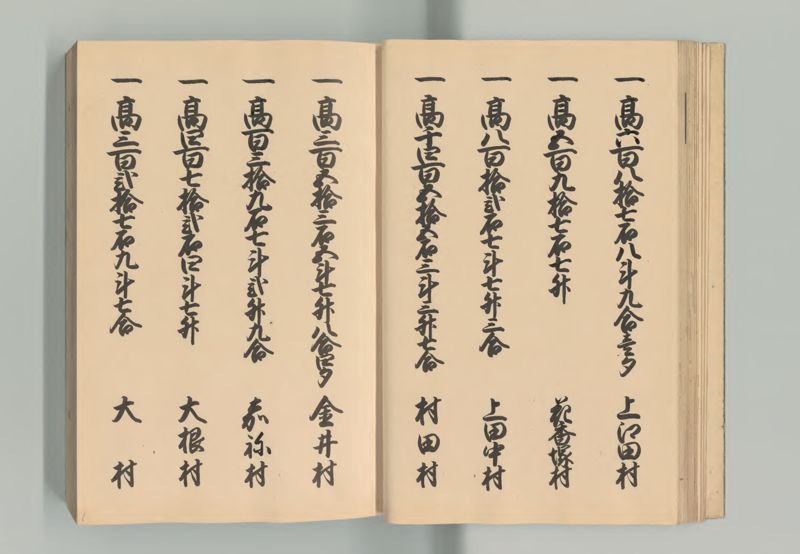 一 高六百八拾七石八斗九合壱夕 上江田村
一 高五百九拾七石七升 花香塚村
一 高八百拾弐石七斗七升三合 上田中村
一 高千四百五拾六石三斗三升七合 村田村
一 高三百五拾三石五斗七升八合四夕 金井村
一 高百三拾九石七斗弐升九合 嘉祢村
一 高四百七拾弐石四斗七升 大根村
一 高三百弐拾七石九斗七合 大村